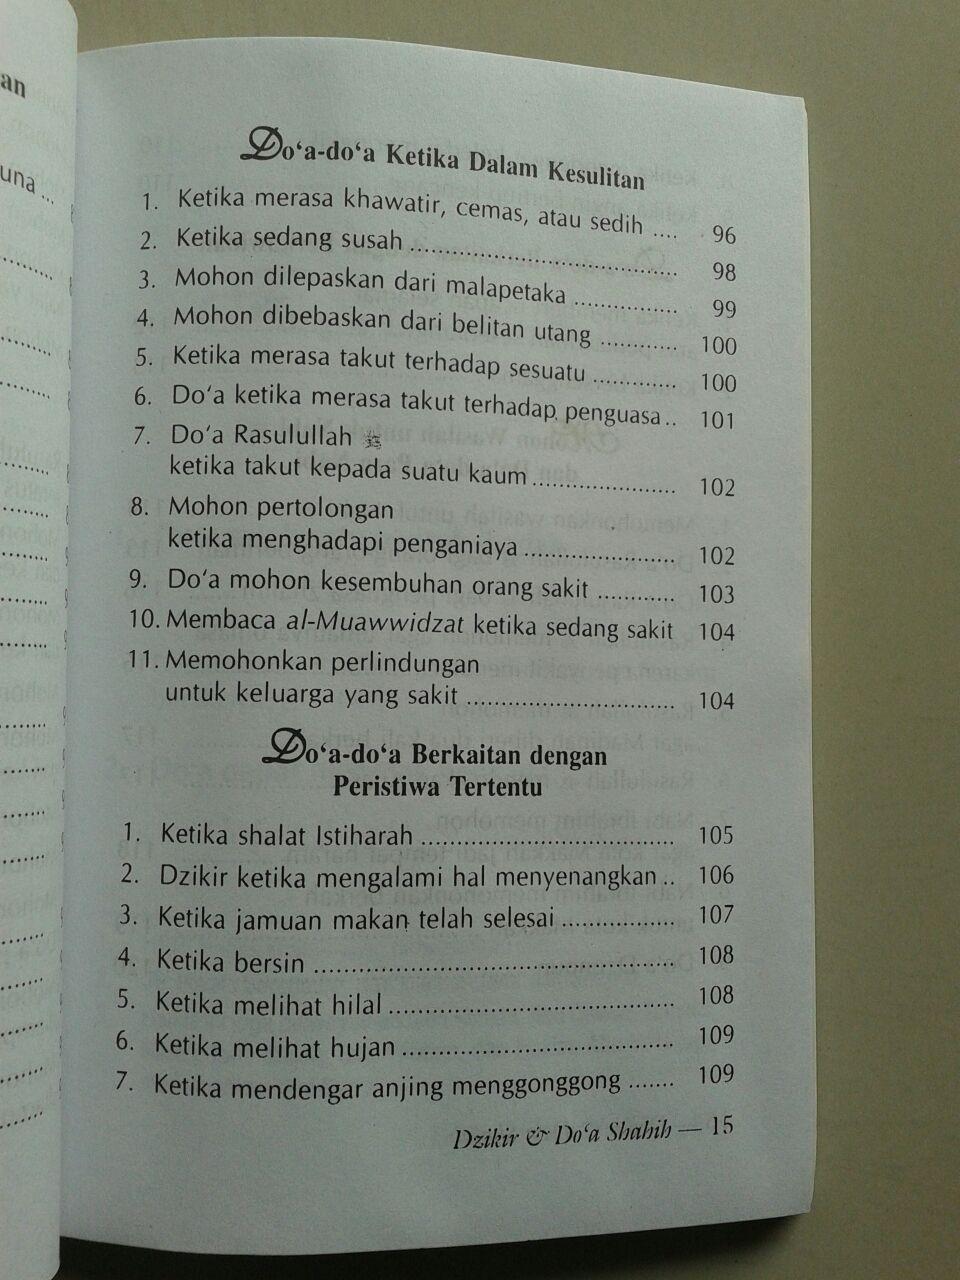 an
una ...
Do‘a-do‘a Ketika Dalam Kesulitan
1. Ketika merasa khawatir, cemas, atau sedih .... 96
2. Ketika sedang susah ........................................ 98
3. Mohon dilepaskan dari malapetaka ............... 99
4. Mohon dibebaskan dari belitan utang ........... 100
5. Ketika merasa takut terhadap sesuatu ............ 100
6. Do‘a ketika merasa takut terhadap penguasa.. 101
7. Do‘a Rasulullah ﷺ
ketika takut kepada suatu kaum ..................... 102
8. Mohon pertolongan
ketika menghadapi penganiaya ...................... 102
9. Do‘a mohon kesembuhan orang sakit ........... 103
10. Membaca al-Muawwidzat ketika sedang sakit 104
11. Memohonkan perlindungan
untuk keluarga yang sakit ............................... 104
Do‘a-do‘a Berkaitan dengan
Peristiwa Tertentu
1. Ketika shalat Istiharah ..................................... 105
2. Dzikir ketika mengalami hal menyenangkan .. 106
3. Ketika jamuan makan telah selesai ................ 107
4. Ketika bersin ................................................... 108
5. Ketika melihat hilal ......................................... 108
6. Ketika melihat hujan ....................................... 109
7. Ketika mendengar anjing menggonggong ....... 109
Dzikir & Do‘a Shahih — 15